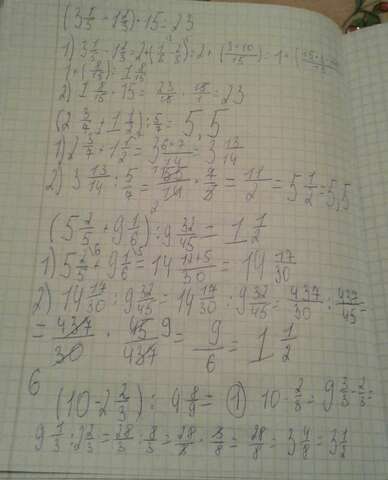 (3 1/5 - 1 2/3) · 15 = 23
1) 3 1/5 - 1 2/3 = 2 + (1/5 - 2/3) = 2 + (3+10/15) = 1 +
1 + (8/15) = 1 8/15
2) 1 8/15 · 15 = 23/15 · 15/1 = 23
(2 3/7 + 1 1/2) : 5/7 = 5,5
1) 2 3/7 + 1 1/2 = 3 6+7/14 = 3 13/14
2) 3 13/14 : 5/7 = 55/14 · 7/5 = 11/2 = 5 1/2 = 5,5
(5 2/5 + 9 1/6) : 9 32/45 = 1 1/2
1) 5 2/5 + 9 1/6 = 14 12+5/30 = 14 17/30
2) 14 17/30 : 9 32/45 = 14 17/30 : 9 32/45 = 437/30 : 437/45 =
= 437/30 · 45/437 = 9/6 = 1 1/2
б
(10 - 2 2/3) : 4 8/9 = ① 10 - 2/3 = 9 3/3 - 2/3 =
9 1/3 : 2 2/3 = 28/3 : 8/3 = 28/3 · 3/8 = 28/8 = 3 4/8 = 3 1/2